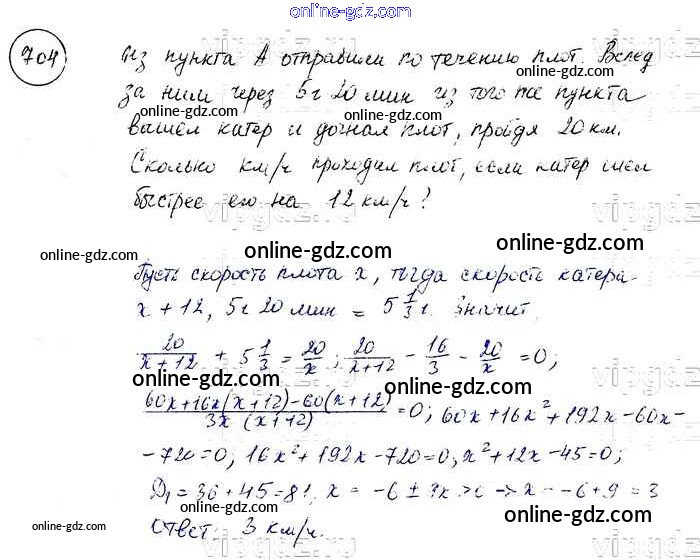 online-gdz.com
online-gdz.com
704 Из пункта А отправили по течению плот. Вслед
online-gdz.com
за ним через 5ч 20 мин из того же пункта
online-gdz.com
вышел катер и догнал плот, пройдя 20 км.
Сколько км/ч проходил плот, если катер шел
быстрее его на 12 км/ч?
online-gdz.com online-gdz.com online-gdz.com
Пусть скорость плота x, тогда скорость катера
x + 12, 5ч 20 мин = 5 1/3 ч. Значит,
online-gdz.com
20/(x+12) + 5 1/3 = 20/x; 20/(x+12) - 16/3 - 20/x = 0;
online-gdz.com online-gdz.com
(60x+16x(x+12)-60(x+12))/(3x(x+12)) = 0; 60x+16x²+192x-60x-
-720=0; 16x²+192x-720=0; x²+12x-45=0;
online-gdz.com
D₁=36+45=81, x = -6 ± 9 x>0 → x = -6+9 = 3
online-gdz.com online-gdz.com
Ответ: 3 км/ч.
online-gdz.com